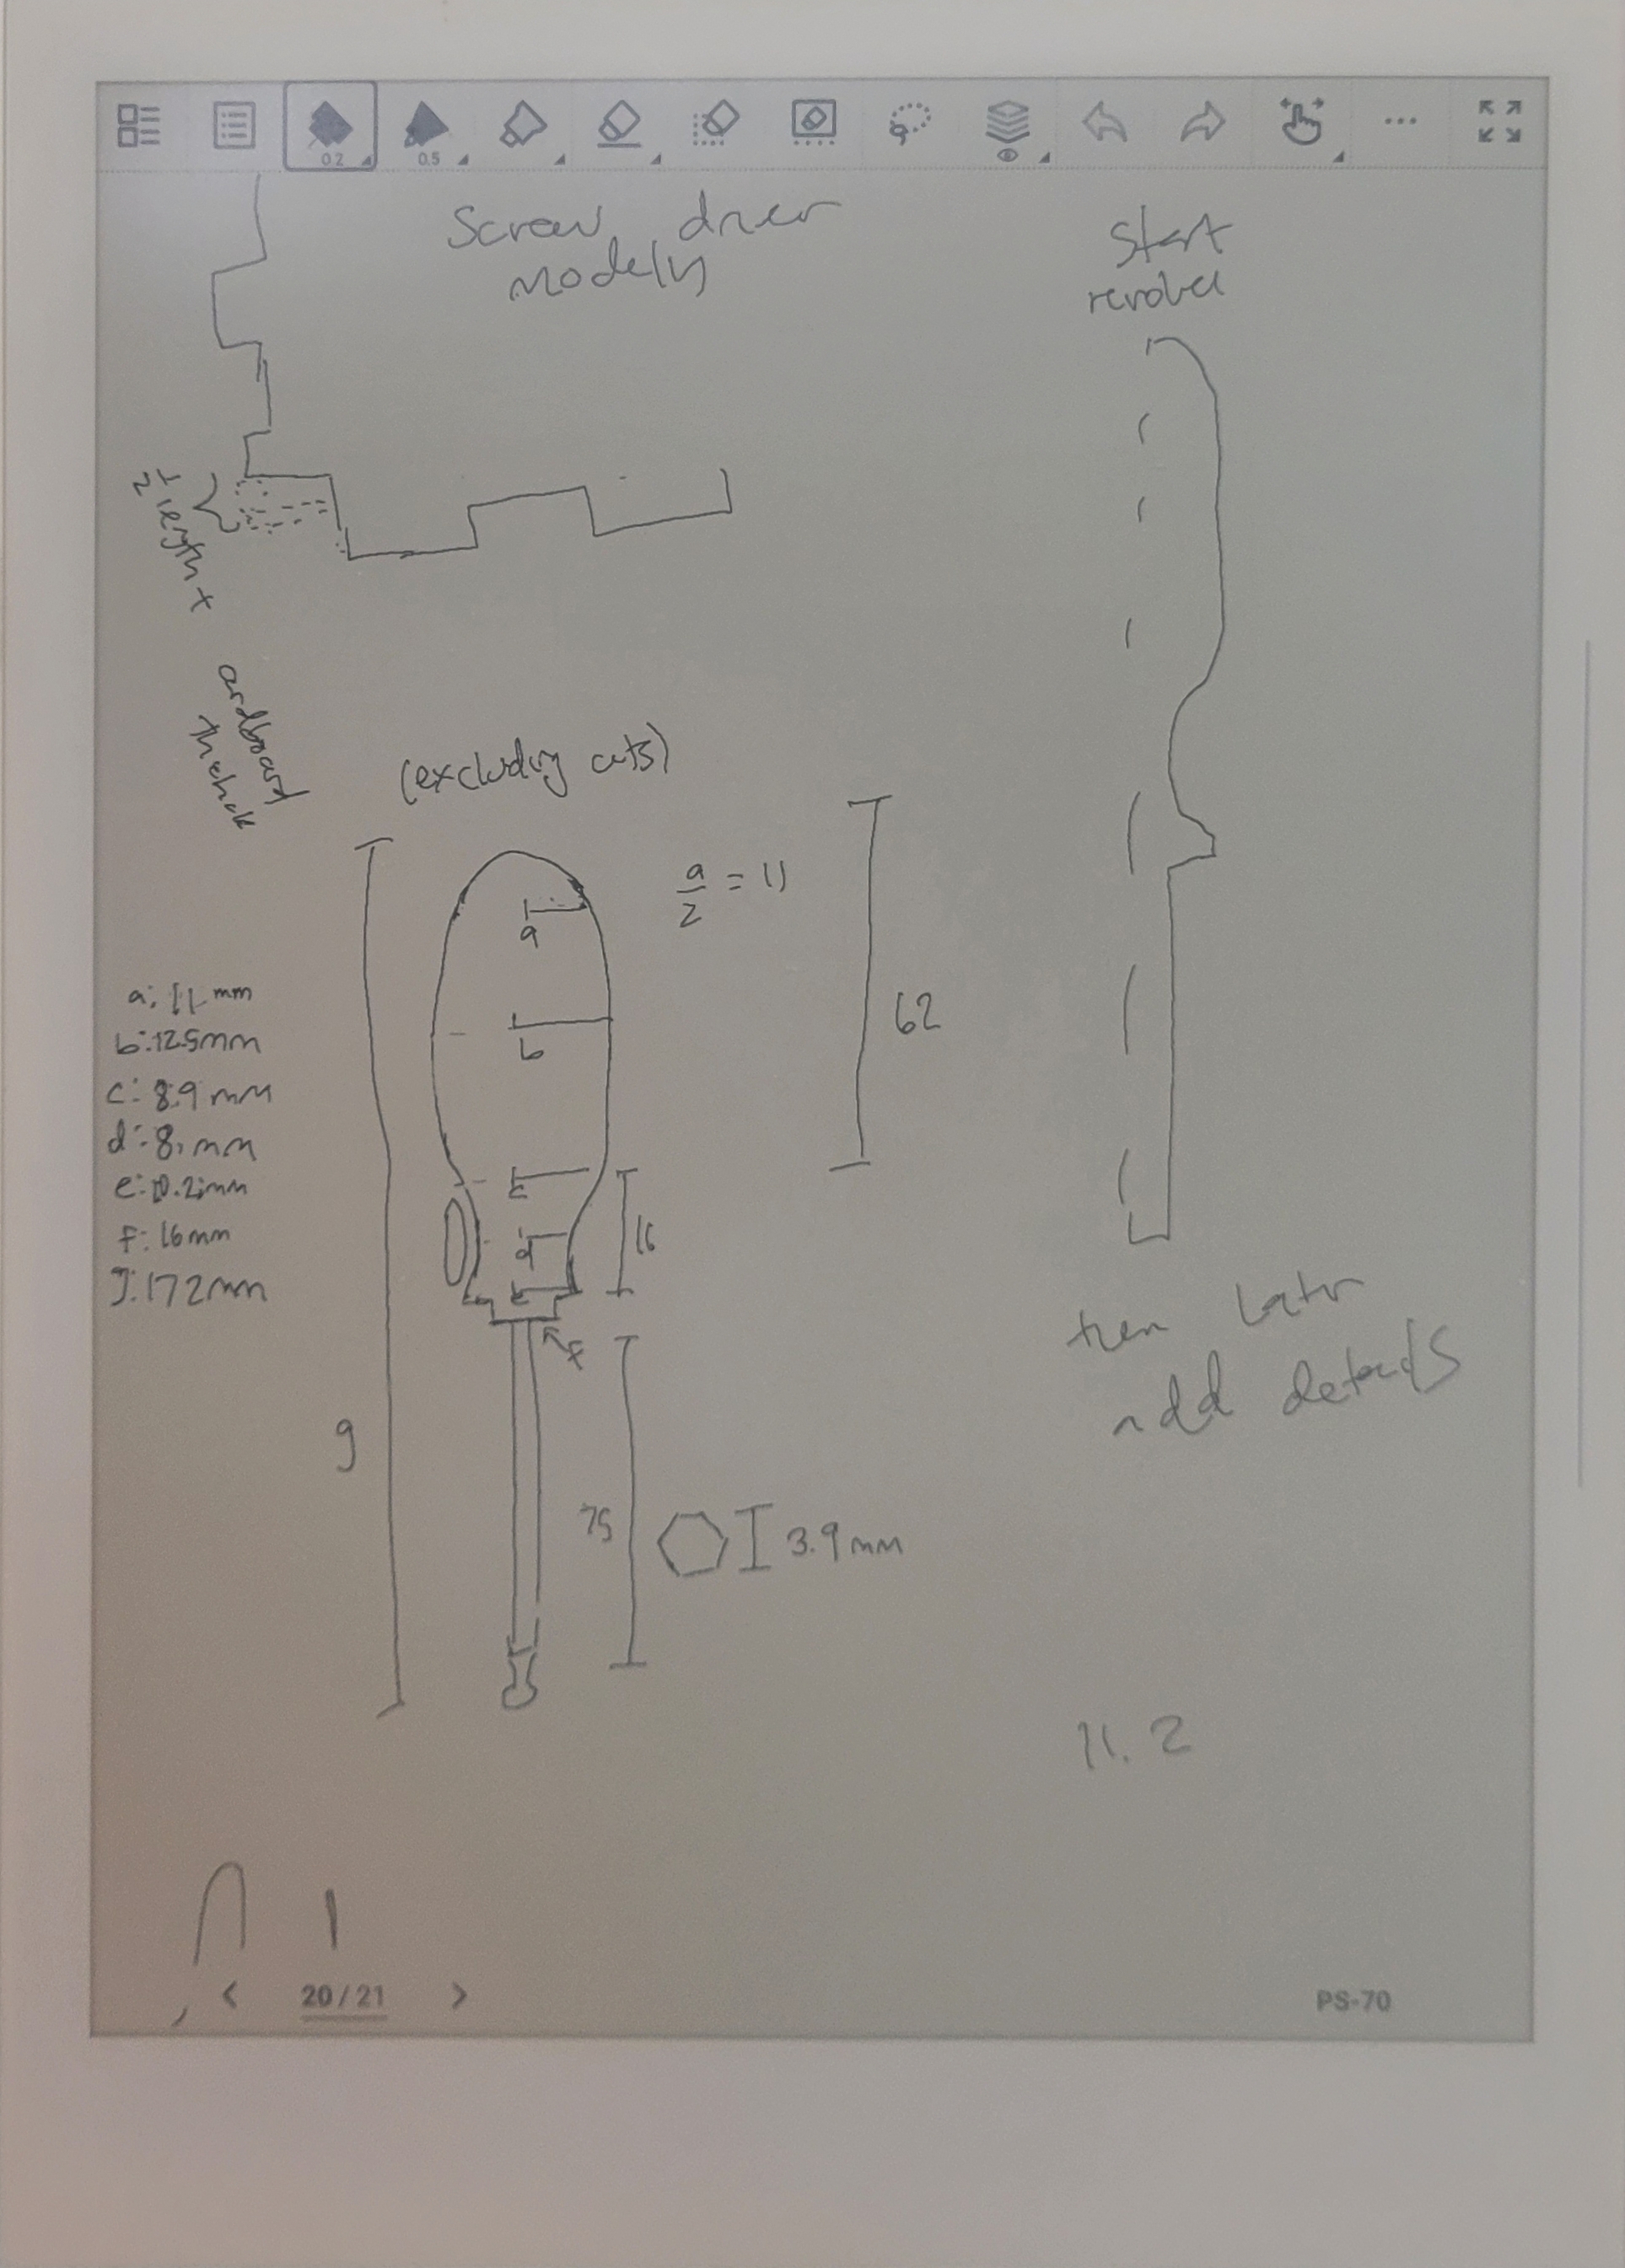 0.2
0.5
Screw driver
model(s)
Start
revolve
1/2 length +
ardboard
thick
(excluding cuts)
a/2 = 11
a
b
62
a: 11 mm
b: 12.5mm
c: 8.9 mm
d: 8, mm
e: 10.2mm
f: 16mm
g: 172mm
c
d
16
e
f
then later
add details
g
75
3.9 mm
11.2
20/21
PS-70